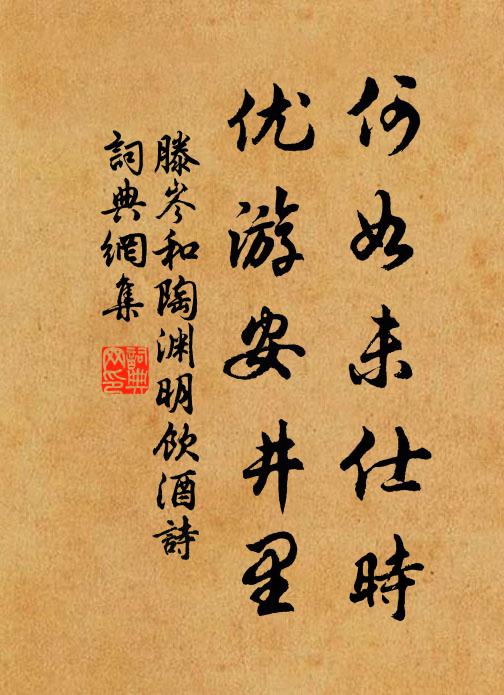 何如未仕時
优游安井里
滕岑和陶渊明饮酒詩
詞典網集
詞典网印